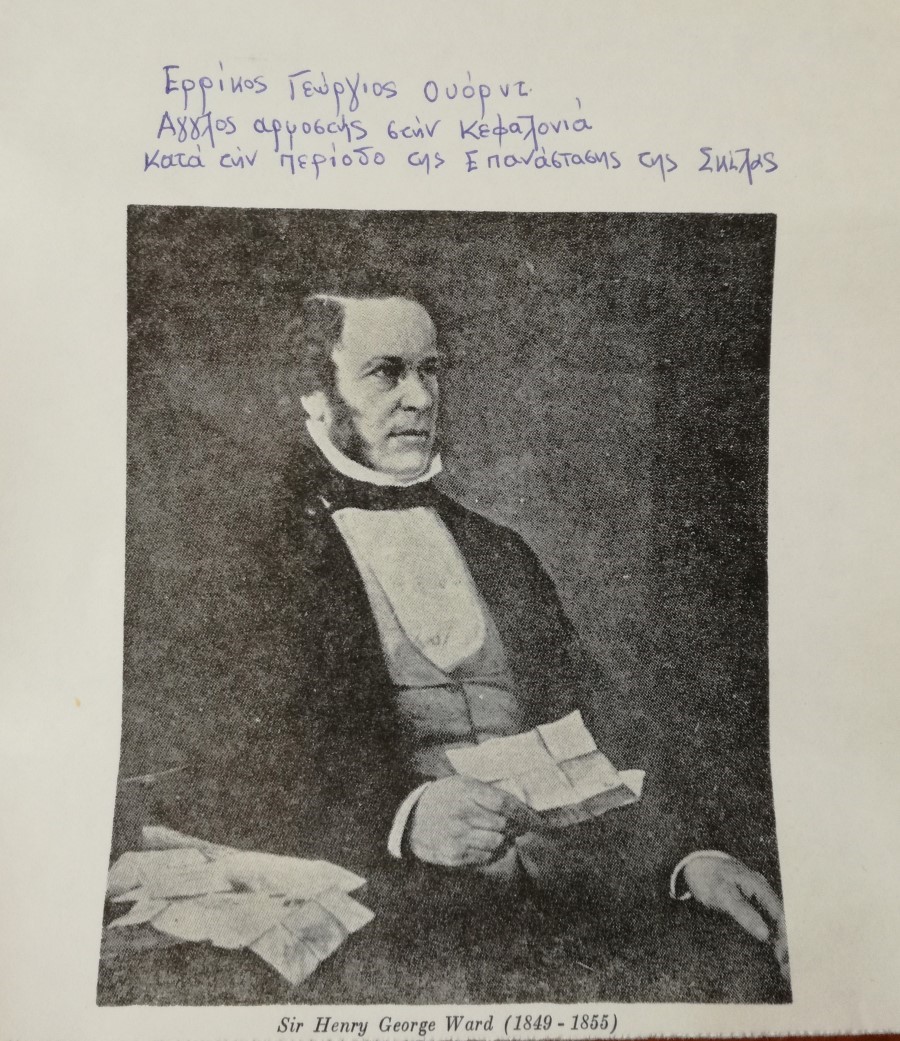 Ερρίκος Γεώργιος Ουόρντ.
Άγγλος αρμοστής στήν Κεφαλονιά
κατά τήν περίοδο της Επανάστασης της Σκάλας
Sir Henry George Ward (1849 - 1855)